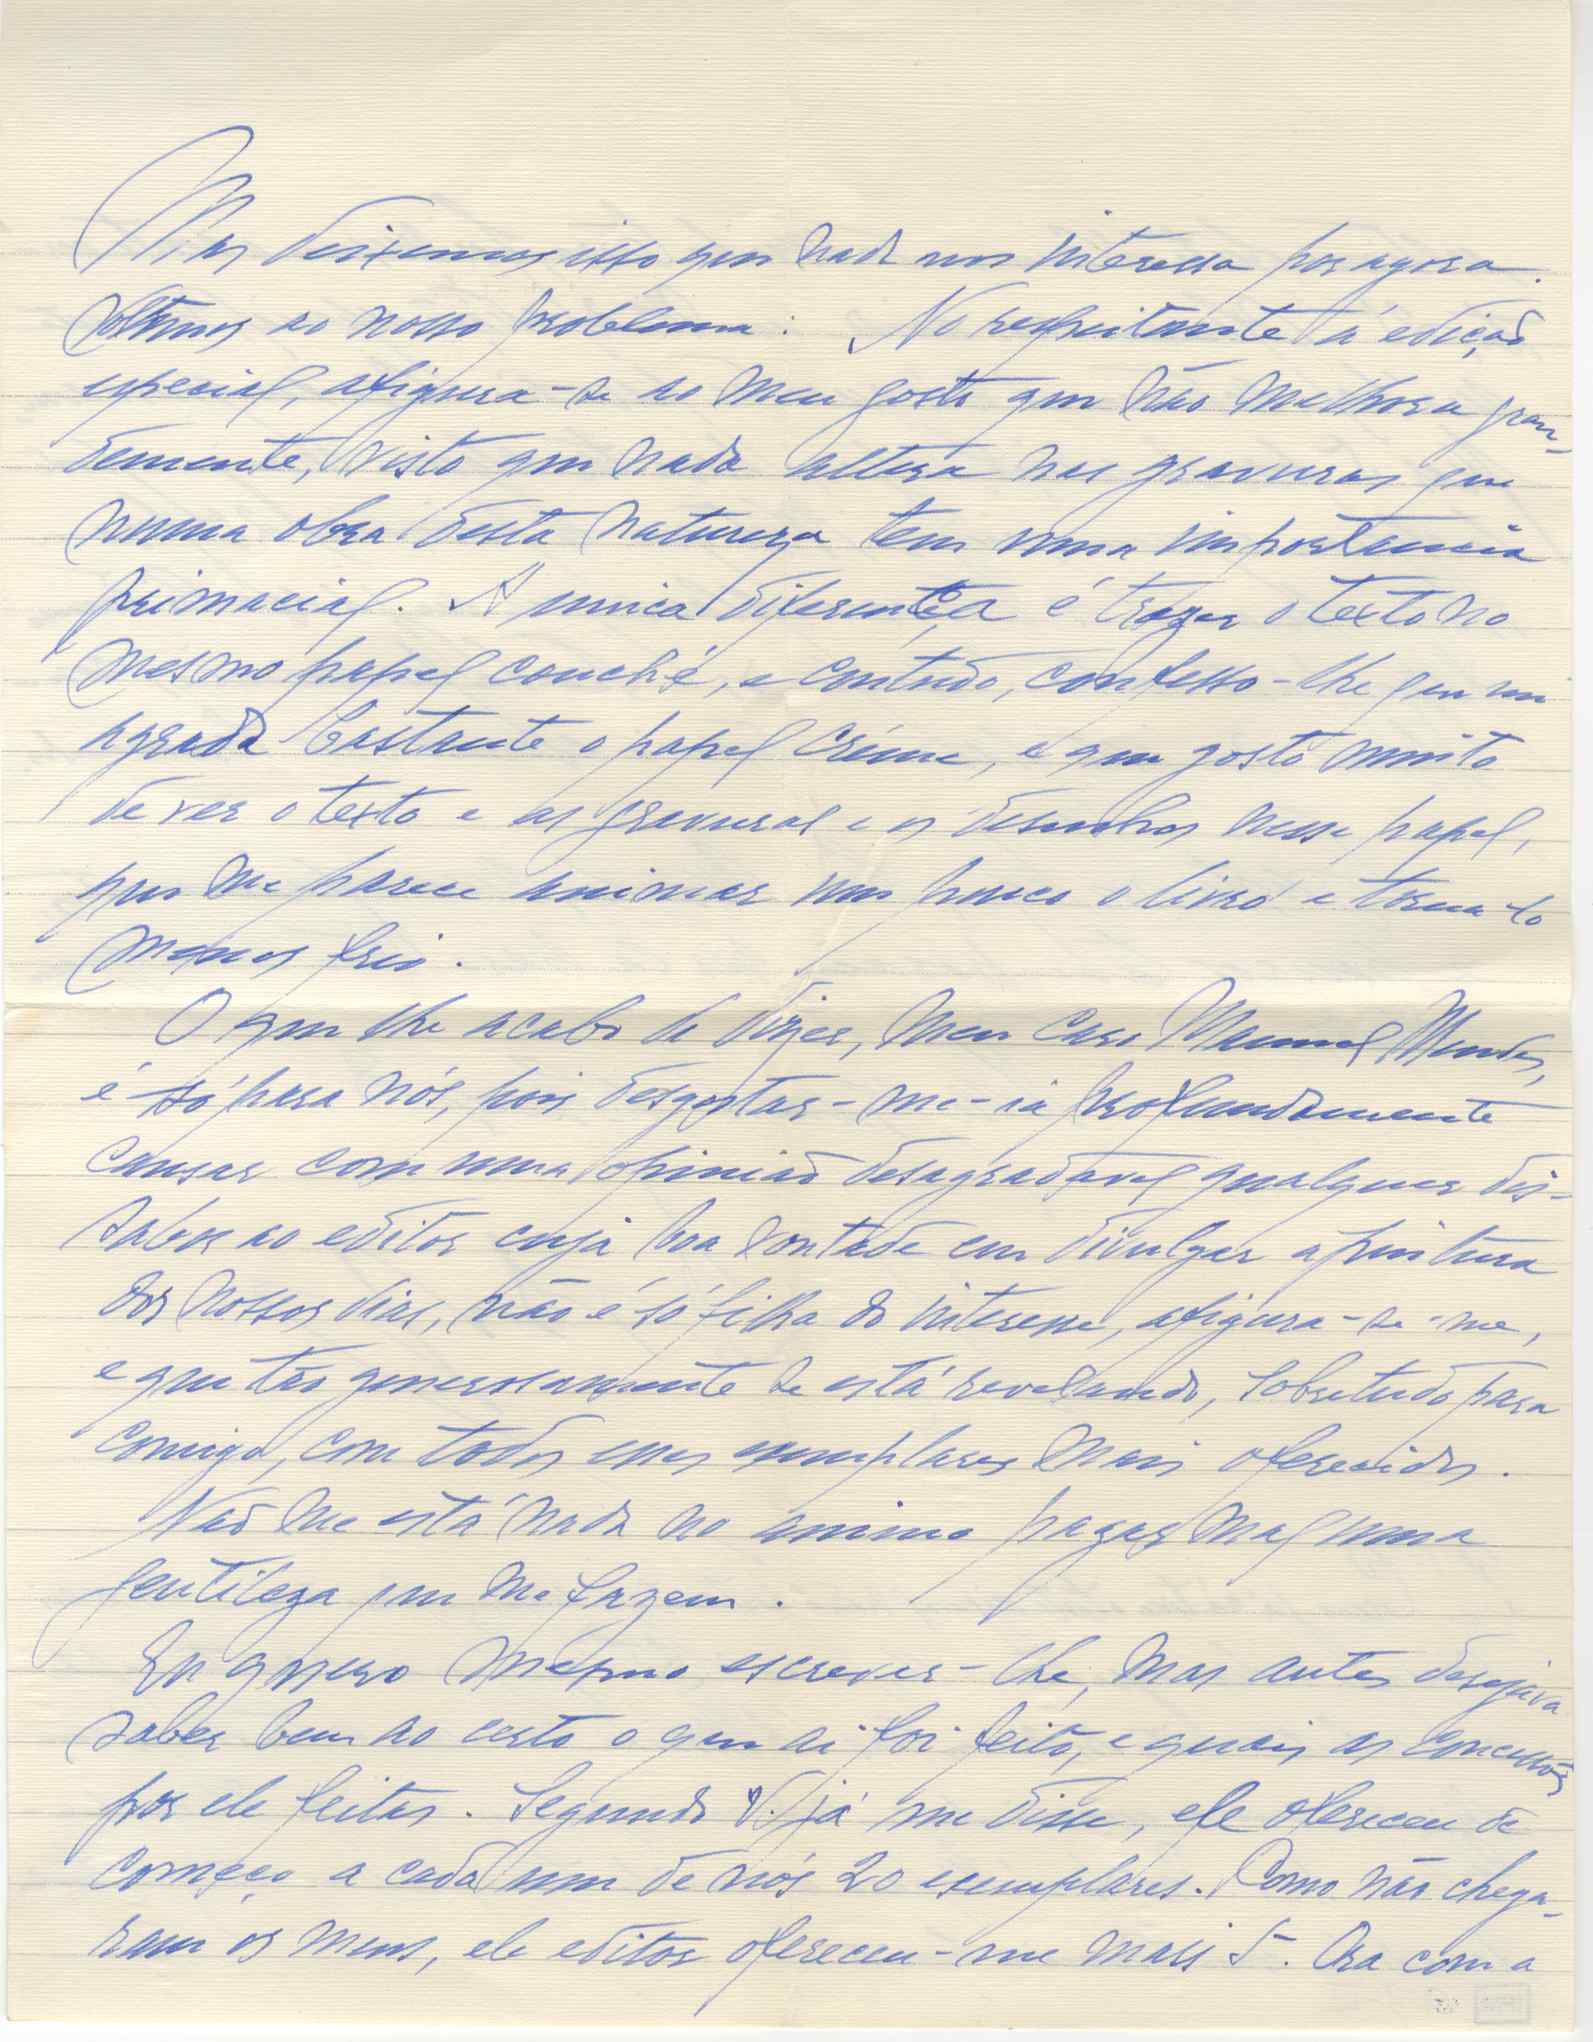 Mas deixemos isso que nada nos interessa por agora.
Voltemos ao nosso problema: No respeitante á edição
especial, afigura-se ao meu gosto que não melhora gran-
demente, visto que nada altera nas gravuras que
numa obra desta natureza tem uma importancia
primacial. A unica diferença é trazer o texto no
mesmo papel couché, e contudo, confesso-lhe que me
agrada bastante o papel créme, e que gosto muito
de ver o texto e as gravuras e os desenhos nesse papel,
que me parece animar um pouco o livro e torna-lo
menos frio.
O que lhe acabo de dizer, meu caro Manuel Mendes,
é só para nós, pois desgostar-me-ia profundamente
causar com uma opinião desagradavel qualquer dis-
sabor ao editor cuja boa vontade em divulgar a pintura
dos nossos dias, não é só filha do interesse, afigura-se-me,
e que tão generosamente se está revelando, sobretudo para
comigo, com todos esses exemplares mais oferecidos.
Não me está nada no animo pagar mal uma
gentileza que me fazem.
Eu quero mesmo escrever-lhe, mas antes desejava
saber bem ao certo o que ai foi feito, e quais as concessões
por ele feitas. Segundo V. já me disse, ele ofereceu de
começo a cada um de nós 20 exemplares. Como não chega-
ram os meus, ele editor ofereceu-me mais 5. Ora com a